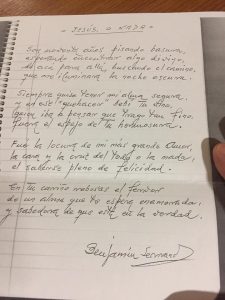 - JESUS, O NADA -
Son noventa años pisando basura,
esperando encontrar algo divino,
de acá para allá, buscando el camino,
que me iluminara la noche oscura.
Siempre quise tener mi alma segura,
y en ese "quehacer" bebí tu vino,
iba a pensar que trago tan fino,
fuera el espejo de tu hermosura.
Fue la locura de mi más grande Amor,
la cara y la cruz del Todo o la nada,
el saberse pleno de felicidad.
En tu cariño el fervor
de un alma que Te espera enamorada,
y sabedora de que está en la verdad.
Benjamín